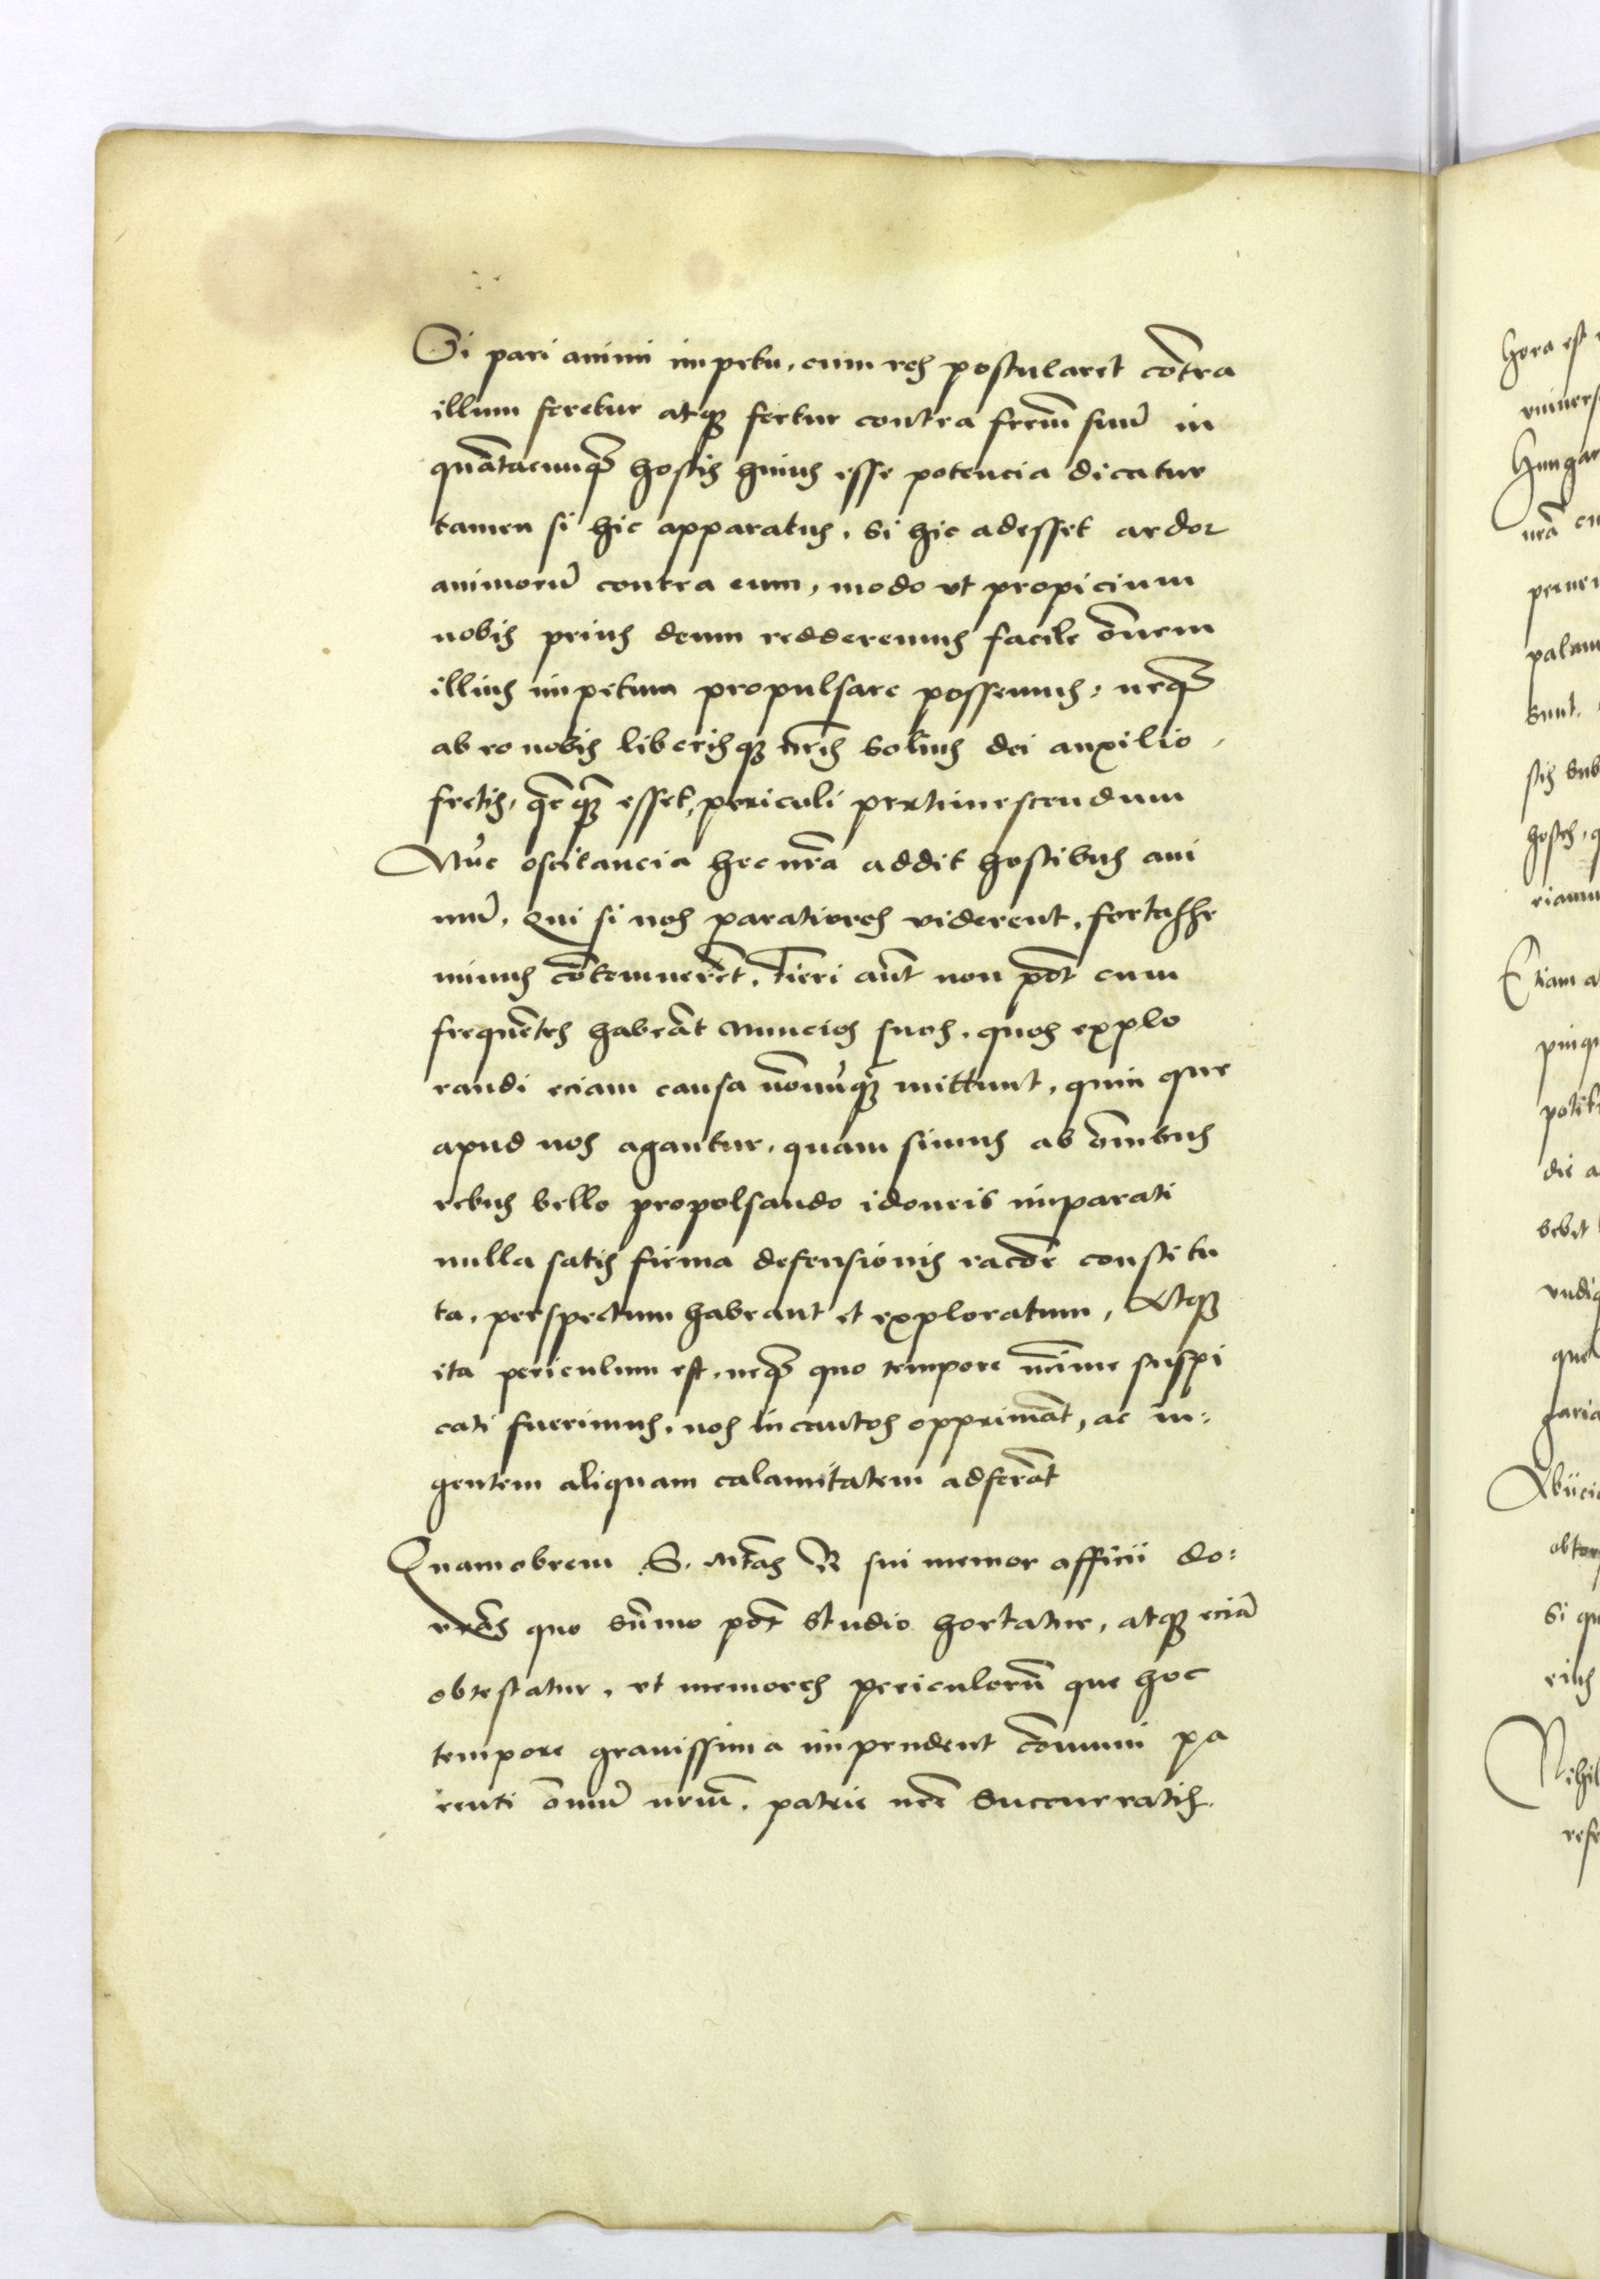 Si pari animi impetu, cum res postularet cōtra
illum feretur atq₃ fertur contra frem̄ suū in
quātacunq₃ hostis huius esse potencia dicatur
tamen si hic apparatus, si hic adesset ardor
animorū contra eum, modo vt propicium
nobis prius deum redderemus facile ōnem
illius impetum propulsare possemus, neq₃
ab eo nobis liberisq₃ nr̄is solius dei auxilio,
fretis, esset, periculi pertimescendum
Nūc oscitancia hec nr̄a addit hostibus ani
mū, Qui si nos paratiores viderent, fortasse
minus cōtemnerēt, Fieri aūt non pōt cum
frequētes habeāt Nuncios suos, quos explo
randi eciam causa nōnūq̄ mittunt, quin que
apud nos agantur, quam simus ab ōmbus
rebus bello propolsando idoneis imparati
nulla satis firma defensionis racōe constitu
ta, perspectum habeant et exploratum, Atq₃
ita periculum est, neq₃ quo tempore mīme suspi
cati fuerimus, nos incautos opprimāt, ac in:
gentem aliquam calamitatem adferāt
Quamobrem S. Mtas R sui memor officii do:
vr̄as quo sūmo pōt studio hortatur, atq₃ eciā
obtestatur, vt memores periculorū que hoc
tempore grauissima impendent cōmuni pa
renti ōmiū nrm̄, patrie nr̄e succurratis.
hora est
vniuers
Hungar
nr̄a cu
perue
palam
sunt.
stis sub
hostes, q
riamu
Etiam a
pinqu
potēt
die a
bebit
vndiq
que
garia
obtem
si qu
eius
Nihil
refe